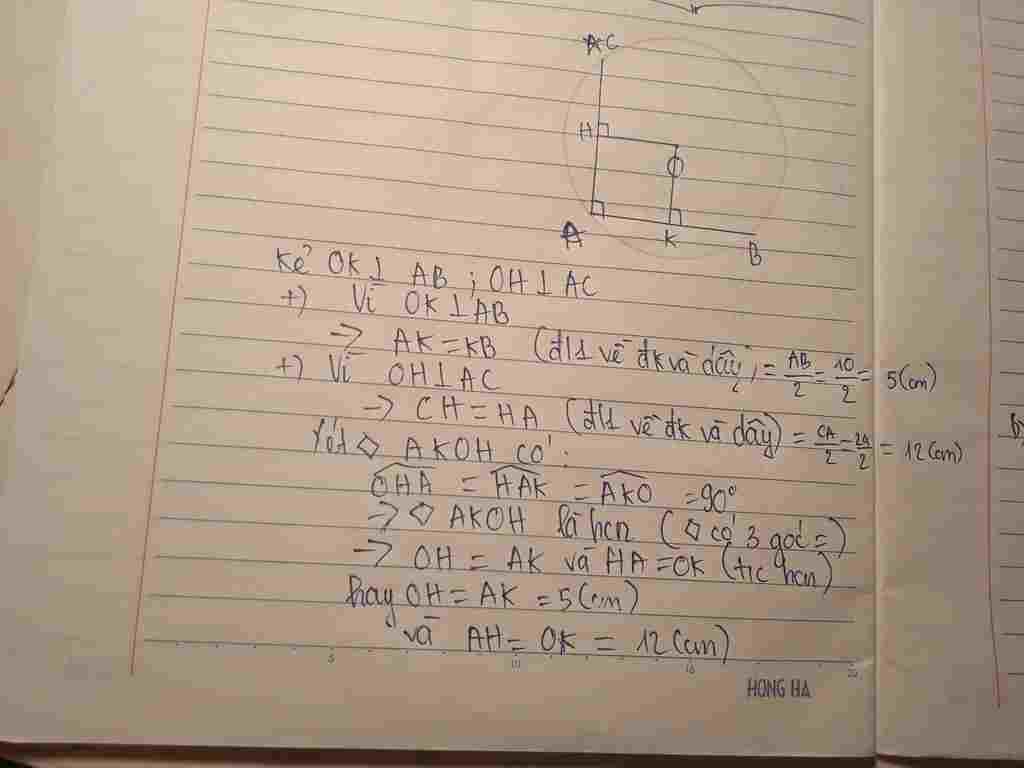 AC
H
O
A
K
B
Kẻ OK⊥ AB ; OH⊥AC
+) Vì OK⊥AB
-> AK=KB (đl1 về đk và dây) = AB/2 = 10/2 = 5(cm)
+) Vì OH⊥AC
-> CH=HA (đl1 về đk và dây) = CA/2 = 24/2 = 12(cm)
Xét ◇ AKOH có:
OHA = HAK = AKO = 90°
-> ◇ AKOH là hcn (◇ có 3 góc =)
-> OH = AK và HA=OK (t/c hcn)
hay OH= AK = 5(cm)
và AH= OK = 12(cm)
5 10 15 20
HONG HA